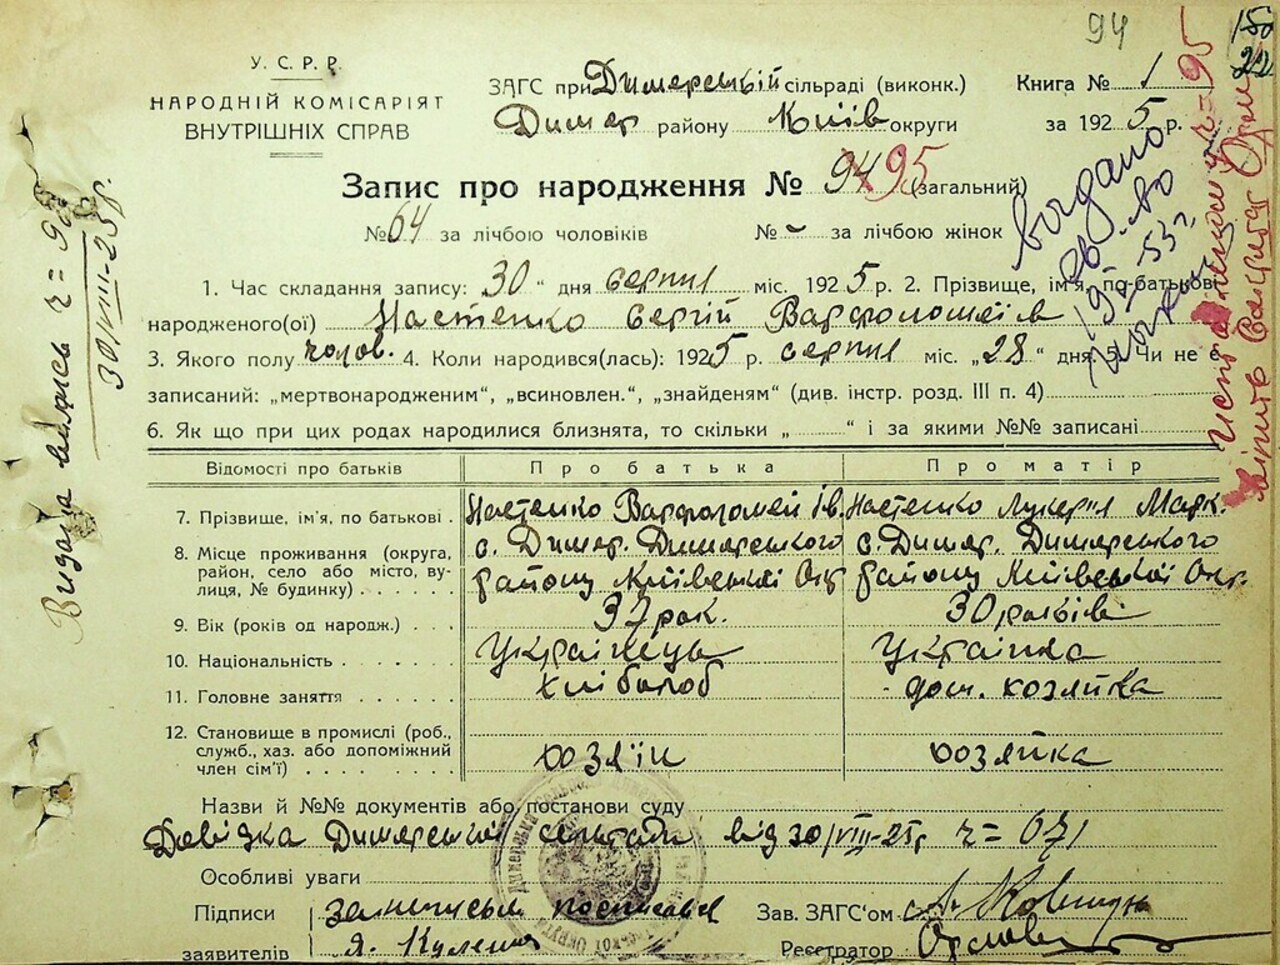 94
У. С. Р. Р.
НАРОДНІЙ КОМІСАРІЯТ
ВНУТРІШНІХ СПРАВ
ЗАГС при Димерській сільраді (виконк.)
Димер району Київ округи
Книга № 1
за 1925 р.
Запис про народження № 94 95 (загальний)
№ 64 за лічбою чоловіків № - за лічбою жінок
1. Час складання запису: 30 " дня серпня міс. 1925 р. 2. Прізвище, ім'я, по-батькові
народженого(ої) Настенко Сергій Варфоломеїв
3. Якого полу чолов. 4. Коли народився(лась): 1925 р. серпня міс. „28" дня 5. Чи не є
записаний: „мертвонародженим", „всиновлен.", „знайденям" (див. інстр. розд. III п. 4)
6. Як що при цих родах народилися близнята, то скільки „ " і за якими №№ записані
Відомості про батьків Про батька Про матір
7. Прізвище, ім'я, по батькові . Настенко Варфоломей Ів. Настенко Лукерія Марк.
8. Місце проживання (округа, район, село або місто, вулиця, № будинку) . . . . . .
с. Димер. Димерського с. Димер. Димерського
району Київської Окр району Київської Окр.
9. Вік (років од народж.) . . . 37 рок. 30 років
10. Національність . . . . . . Українець Українка
11. Головне заняття . . . . . хлібороб дом. хозяйка
12. Становище в промислі (роб., служб., хаз. або допоміжний член сім'ї) . . . . . . . .
хозяїн хозяйка
Назви й №№ документів або постанови суду
Довідка Димерської сельради від 30/VIII-25г
Особливі уваги
Підписи
заявителів
Зав. ЗАГС'ом
Реєстратор
Видана
30/VIII-25г.
видано